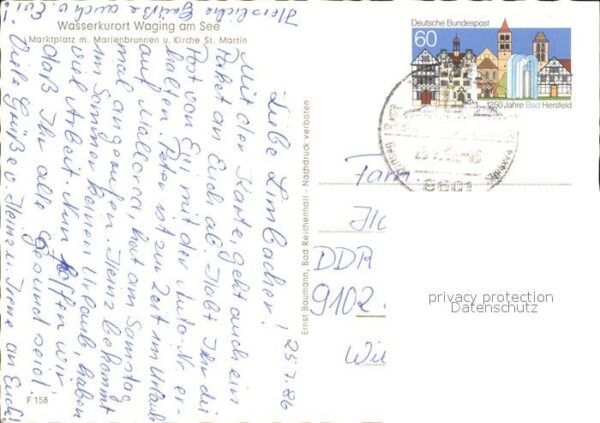 Wasserkurort Waging am See
Marktplatz m. Marienbrunnen u. Kirche St. Martin
25.7.86
Liebe Limbacher!
Mit der Karte, geht auch ein
Paket an Euch ab. Habt Ihr die
Post von Eri mit der Auto-Nr. er-
halten. Peter ist zur Zeit im Urlaub
auf Mallorca, hat am Samstag
mal angerufen. Heinz bekommt
im Sommer keinen Urlaub, haben
viel Arbeit. Nun hoffen wir
daß Ihr alle gesund seid!
Viele Grüße Heinz u. Irene an Euch!
Herzliche Grüße auch v.
F 158
Ernst Baumann, Bad Reichenhall · Nachdruck verboten
Deutsche Bundespost
60
1250 Jahre Bad Hersfeld
Fam.
DDR
9102
privacy protection
Datenschutz